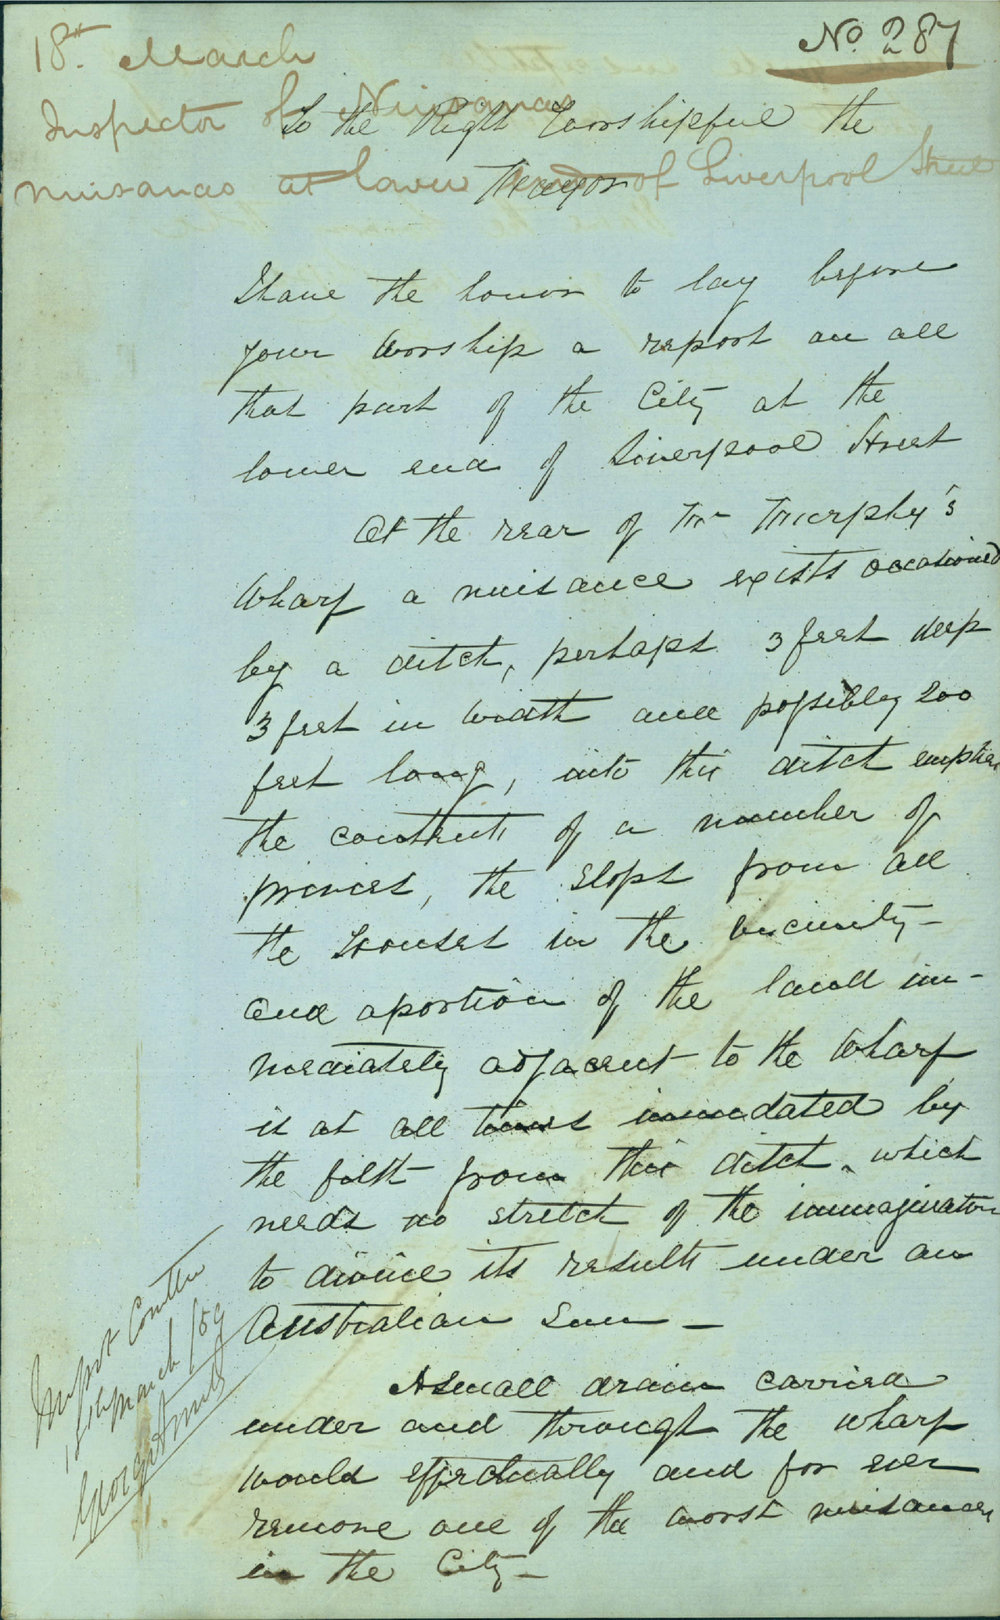 No. 287
18th. March
Inspector of Nuisances
nuisances at lower end of Liverpool Street
To the Right Worshipful the
Mayor
I have the honor to lay before
your Worship a report on all
that part of the City at the
lower end of Liverpool Street
At the rear of Mr Murphy's
Wharf a nuisance exists occasioned
by a ditch, perhaps 3 feet deep
3 feet in width and possibly 200
feet long, into this ditch empties
the contents of a number of
privies, the slops from all
the houses in the vicinity-
and a portion of the land im-
mediately adjacent to the Wharf
is at all times inundated by
the filth from this ditch, which
needs no stretch of the immagination
to divine its results under an
Australian Sun -
A small drain carried
under and through the wharf
would effectually and for ever
remove one of the worst nuisances
in the City-
Impt Comttee
18th March /59